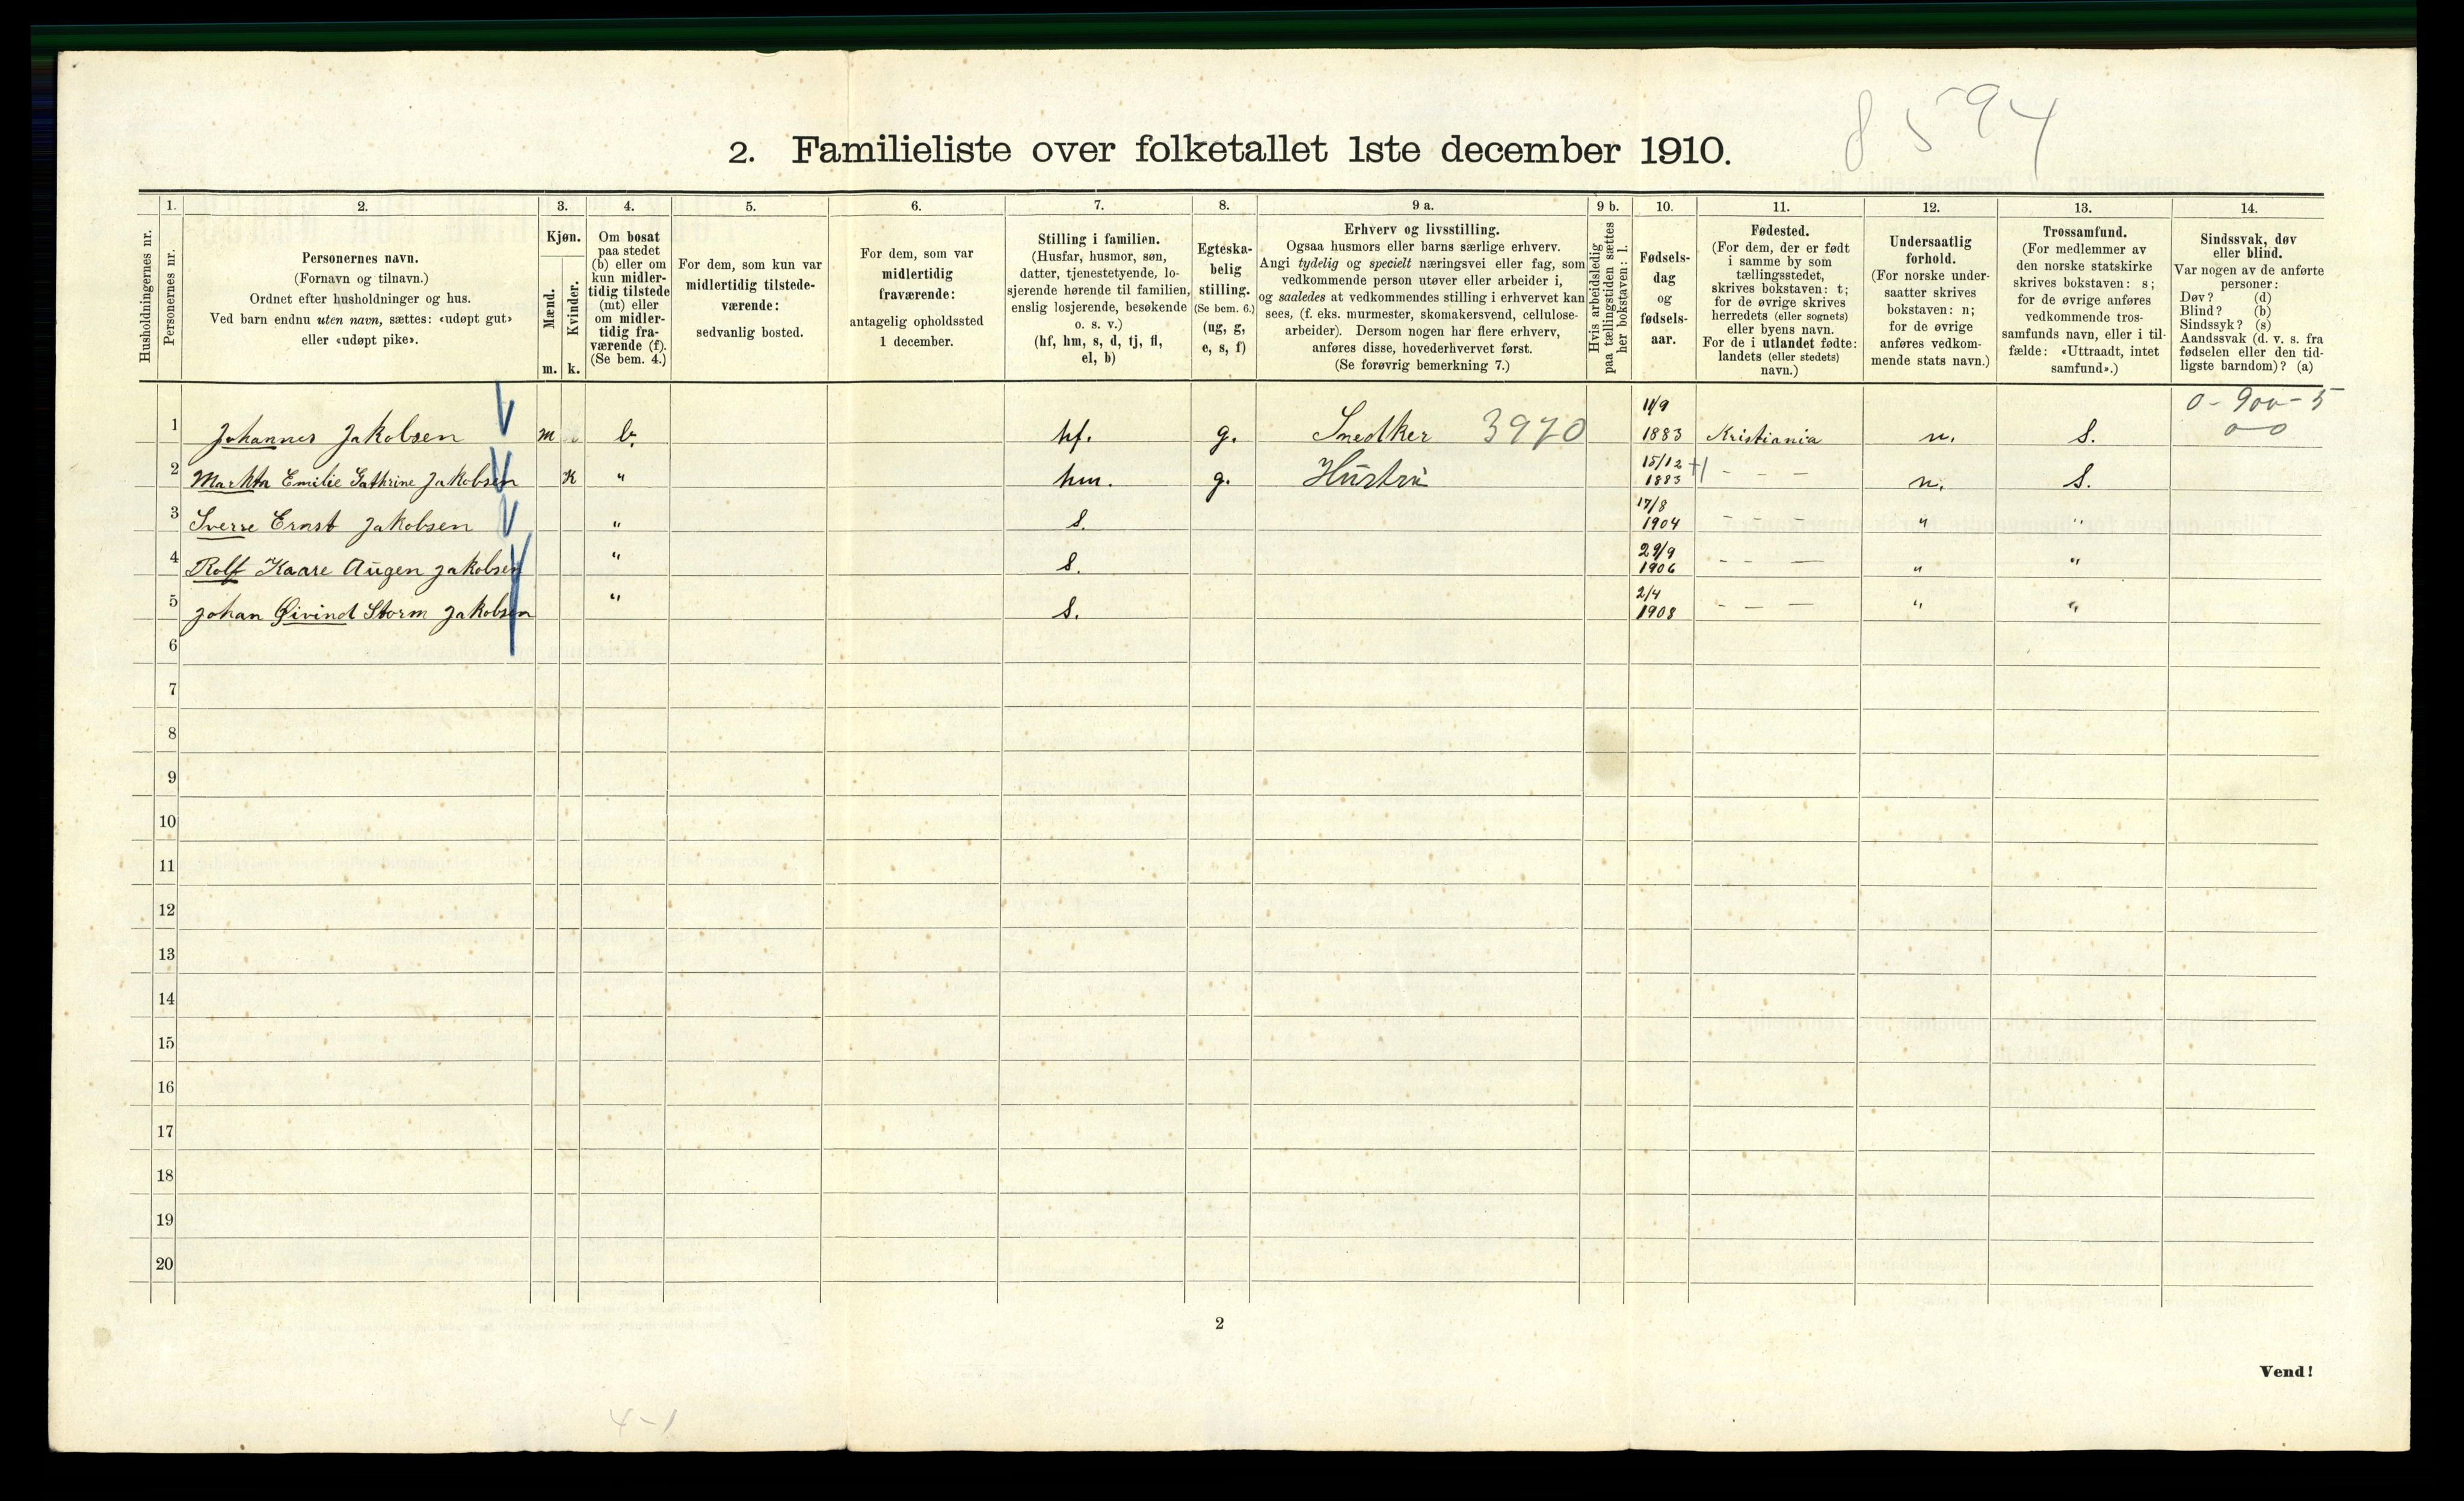 8594
2. Familieliste over folketallet 1ste december 1910.
Husholdningernes nr.
1.
Personernes nr.
2.
Personernes navn.
(Fornavn og tilnavn.)
Ordnet efter husholdninger og hus.
Ved barn endnu uten navn, sættes: «udøpt gut»
eller «udøpt pike».
3.
Kjøn.
Mænd.
Kvinder.
m. k.
4.
Om bosat
paa stedet
(b) eller om
kun midler-
tidig tilstede
(mt) eller
om midler-
tidig fra-
værende (f).
(Se bem. 4.)
5.
For dem, som kun var
midlertidig tilstede-
værende:
sedvanlig bosted.
6.
For dem, som var
midlertidig
fraværende:
antagelig opholdssted
1 december.
7.
Stilling i familien.
(Husfar, husmor, søn,
datter, tjenestetyende, lo-
sjerende hørende til familien,
enslig losjerende, besøkende
o. s. v.)
(hf, hm, s, d, tj, fl,
el, b)
8.
Egteska-
belig
stilling.
(Se bem. 6.)
(ug, g,
e, s, f)
9 a.
Erhverv og livsstilling.
Ogsaa husmors eller barns særlige erhverv.
Angi tydelig og specielt næringsvei eller fag, som
vedkommende person utøver eller arbeider i,
og saaledes at vedkommendes stilling i erhvervet kan
sees, (f. eks. murmester, skomakersvend, cellulose-
arbeider). Dersom nogen har flere erhverv,
anføres disse, hovederhvervet først.
(Se forøvrig bemerkning 7.)
9 b.
Hvis arbeidsledig
paa tællingstiden sættes
her bokstaven: l.
10.
Fødsels-
dag
og
fødsels-
aar.
11.
Fødested.
(For dem, der er født
i samme by som
tællingsstedet,
skrives bokstaven: t;
for de øvrige skrives
herredets (eller sognets)
eller byens navn.
For de i utlandet fødte:
landets (eller stedets)
navn.)
12.
Undersaatlig
forhold.
(For norske under-
saatter skrives
bokstaven: n;
for de øvrige
anføres vedkom-
mende stats navn.)
13.
Trossamfund.
(For medlemmer av
den norske statskirke
skrives bokstaven: s;
for de øvrige anføres
vedkommende tros-
samfunds navn, eller i til-
fælde: «Uttraadt, intet
samfund».)
14.
Sindssvak, døv
eller blind.
Var nogen av de anførte
personer:
Døv? (d)
Blind? (b)
Sindssyk? (s)
Aandssvak (d. v. s. fra
fødselen eller den tid-
ligste barndom)? (a)
1 Johannes Jakobsen m b. hf. g. Snedker 3970 11/9 1883 Kristiania n. S. 0-900-5
0-0
2 Emilie Jakobsen K " hm. g. Hustru 15/12 1883 - - - n. S.
3 Sverre Ernst Jakobsen " S. 17/8 1904 - - - " "
4 Rolf Kaare Augen Jakobsen " S. 29/9 1906 - - - " "
5 Johan Øivind Storm Jakobsen " S. 2/4 1908 - - - " "
6
7
8
9
10
11
12
13
14
15
16
17
18
19
20
2
Vend!
4-1